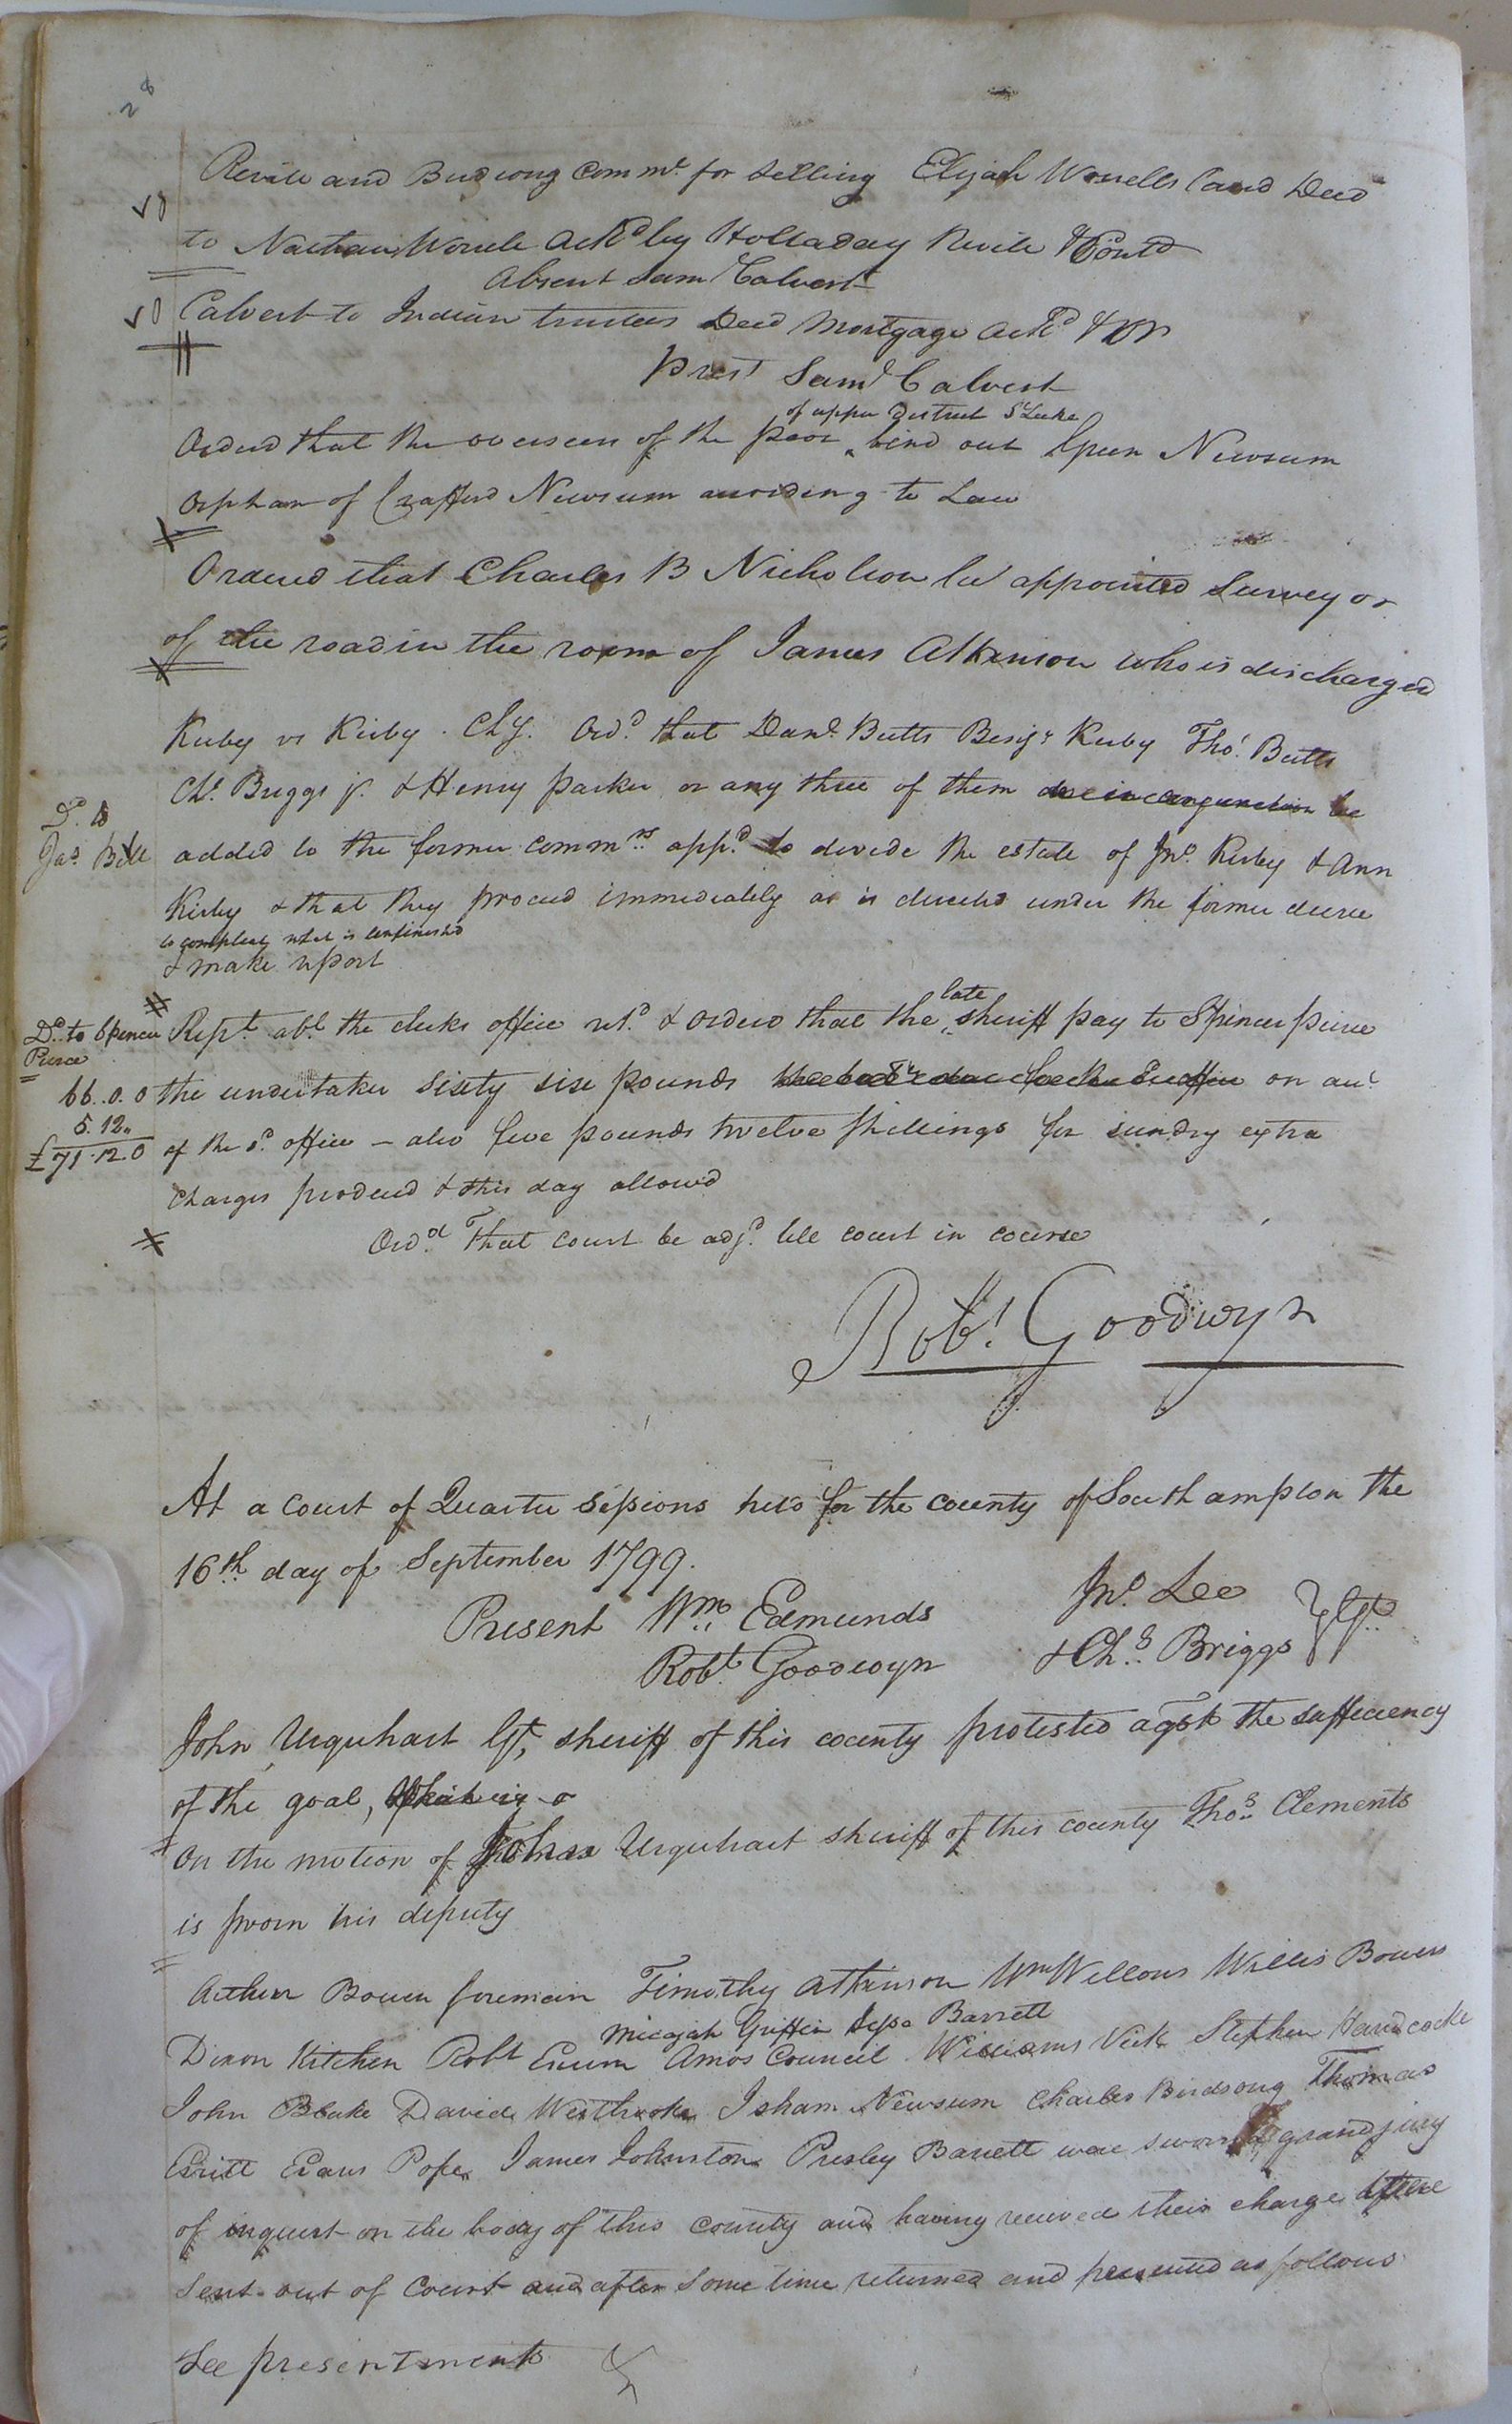 28
and Birdsong Comm.rs for selling Elijah Worrells land Deed
to Nathan Worrele Ackd by Holladay Revile &
Absent Sam Calvert
Calvert to Indian trustees Deed Mortgage ackd & OR
Prest Saml Calvert
of upper district St Luke
Orderd that the overseers of the poor ^ bind out Newsum
orphan of Crafford Newsum according to Law
Ordered that Charles B Nicholson be appointed Surveyor
of the road in the room of James Atkinson who is discharged
Kirby vs Kirby . Chy. Ord. that Danl. Butts Benjn Kirby Thos. Butts
Chs. Briggs jr. & Henry Parker or any three of them be
Do. to
Jas. Bell
added to the former commrs. appd. to devide the estate of Jno. Kirby & Ann
Kirby & that they proceed immediately as is directed under the former decree
to compleat what is unfinished
& make report
Do. to Spencer
Pierce
Rept. abt. the clerks office retd. & ordered that the ^ late sheriff pay to Spencer Peirce
66..0.0
5.12..
£71.12.0
the undertaker sixty six pounds on act
of the sd. office – also five pounds twelve shillings for sundry extra
charges produced & this day allowed
Ordd. That court be adjd. till court in course
Robt. Goodwyn
At a Court of Quarter Sessions held for the county of Southampton the
16th day of September 1799.
Present Wm. Edmunds Jno. Lee
Robt. Goodwyn & Chs. Briggs } Gt.
John Urquhart Gt, sheriff of this county protested agst the sufficiency
of the goal,
On the motion of John Urquhart sheriff of this county Thos. Clements
is sworn his deputy
Arthur Bowen foreman Timothy Atkinson Wm Vellous Willis Bowers
Micajah Griffin Jesse Barrett
Dixon Kitchen Robt Amos Council Williams Vick Stephen Handcocke
John Blake David Westbrook Isham Newsum Charles Birdsong Thomas
Evritt Evans Pope James Johnston Presley Barrett were sworn a grand jury
of inquest on the body of this County and having received their charge were
sent out of Court and after some time returned and presented as follows
See presentments